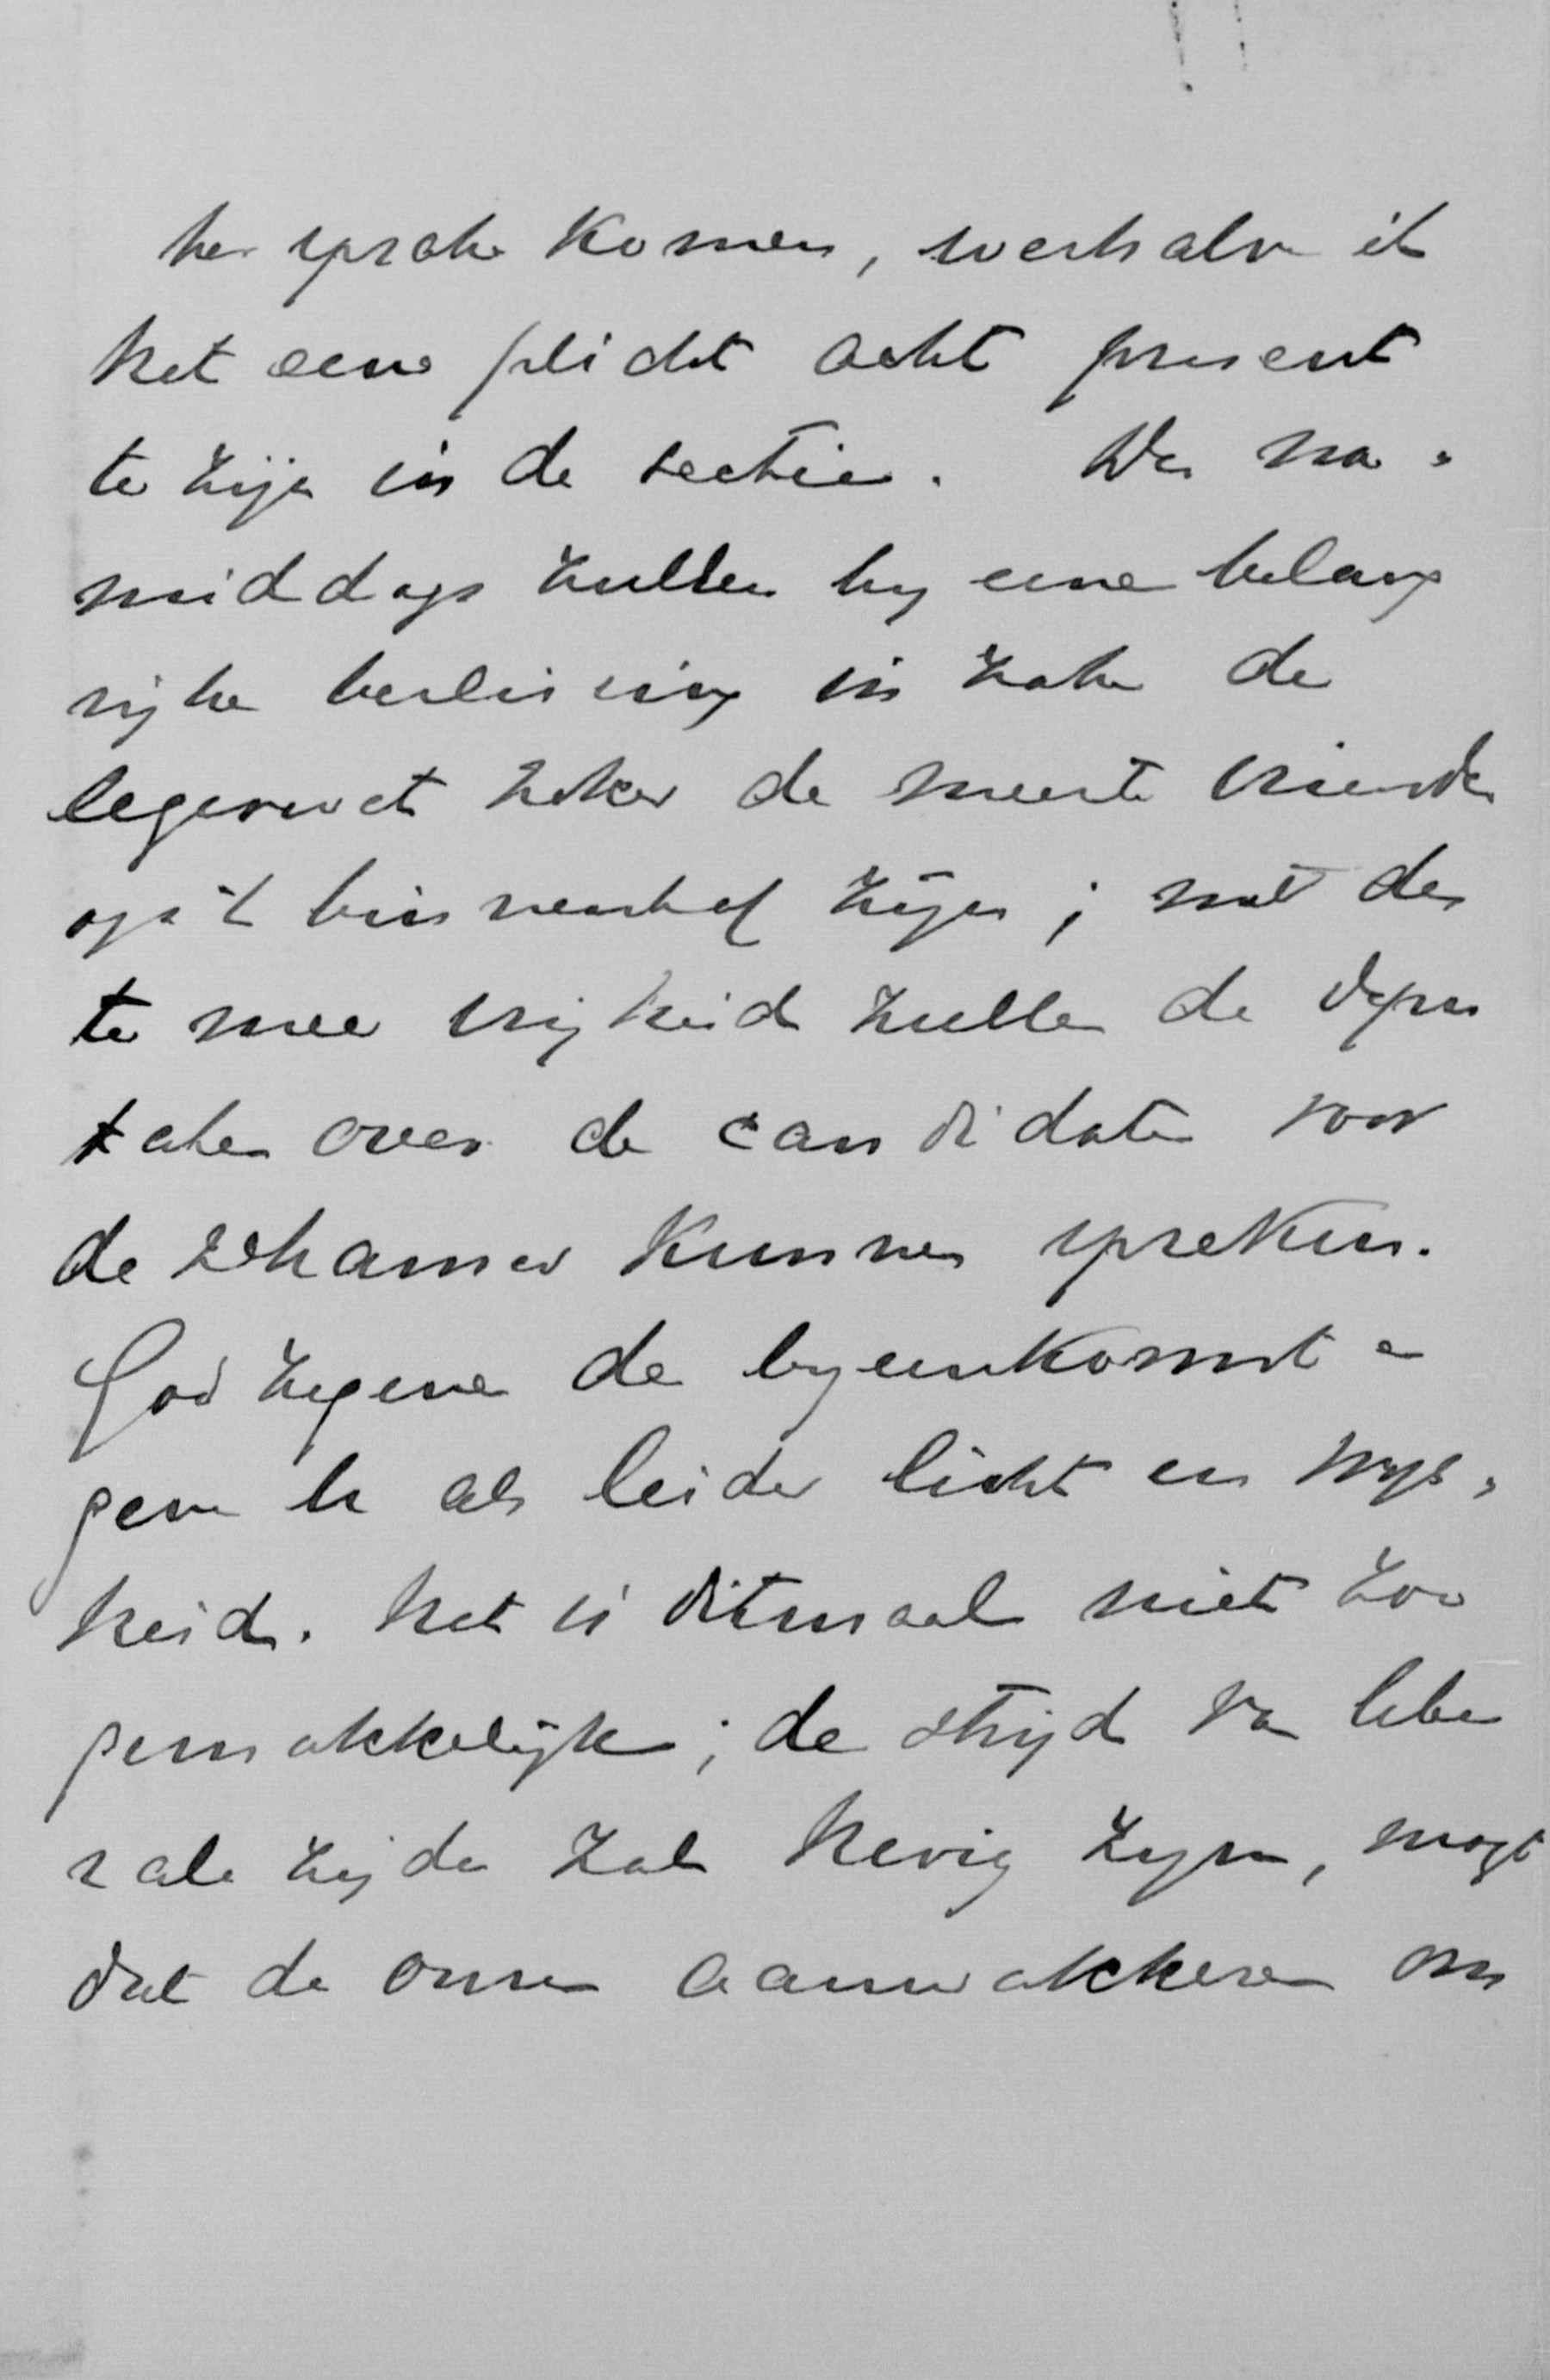 ter sprake komen, weshalve ik
het eene plicht acht present
te zijn in de sectie. Des na-
middags zullen by eene belang
rijke beslissing in zake de
legerwet zeker de meeste vrienden
op 't binnenhof zijn; met des
te meer vrijheid zullen de depu
taten over de candidaten voor
de 2e kamer kunnen spreken.
God zegene de byeenkomst en
geve U als leider licht en wijs-
heid. Het is ditmaal niet zoo
gemakkelijk; de strijd van libe
rale zijde zal hevig zijn, mogt
dat de onzen aanwakkeren om